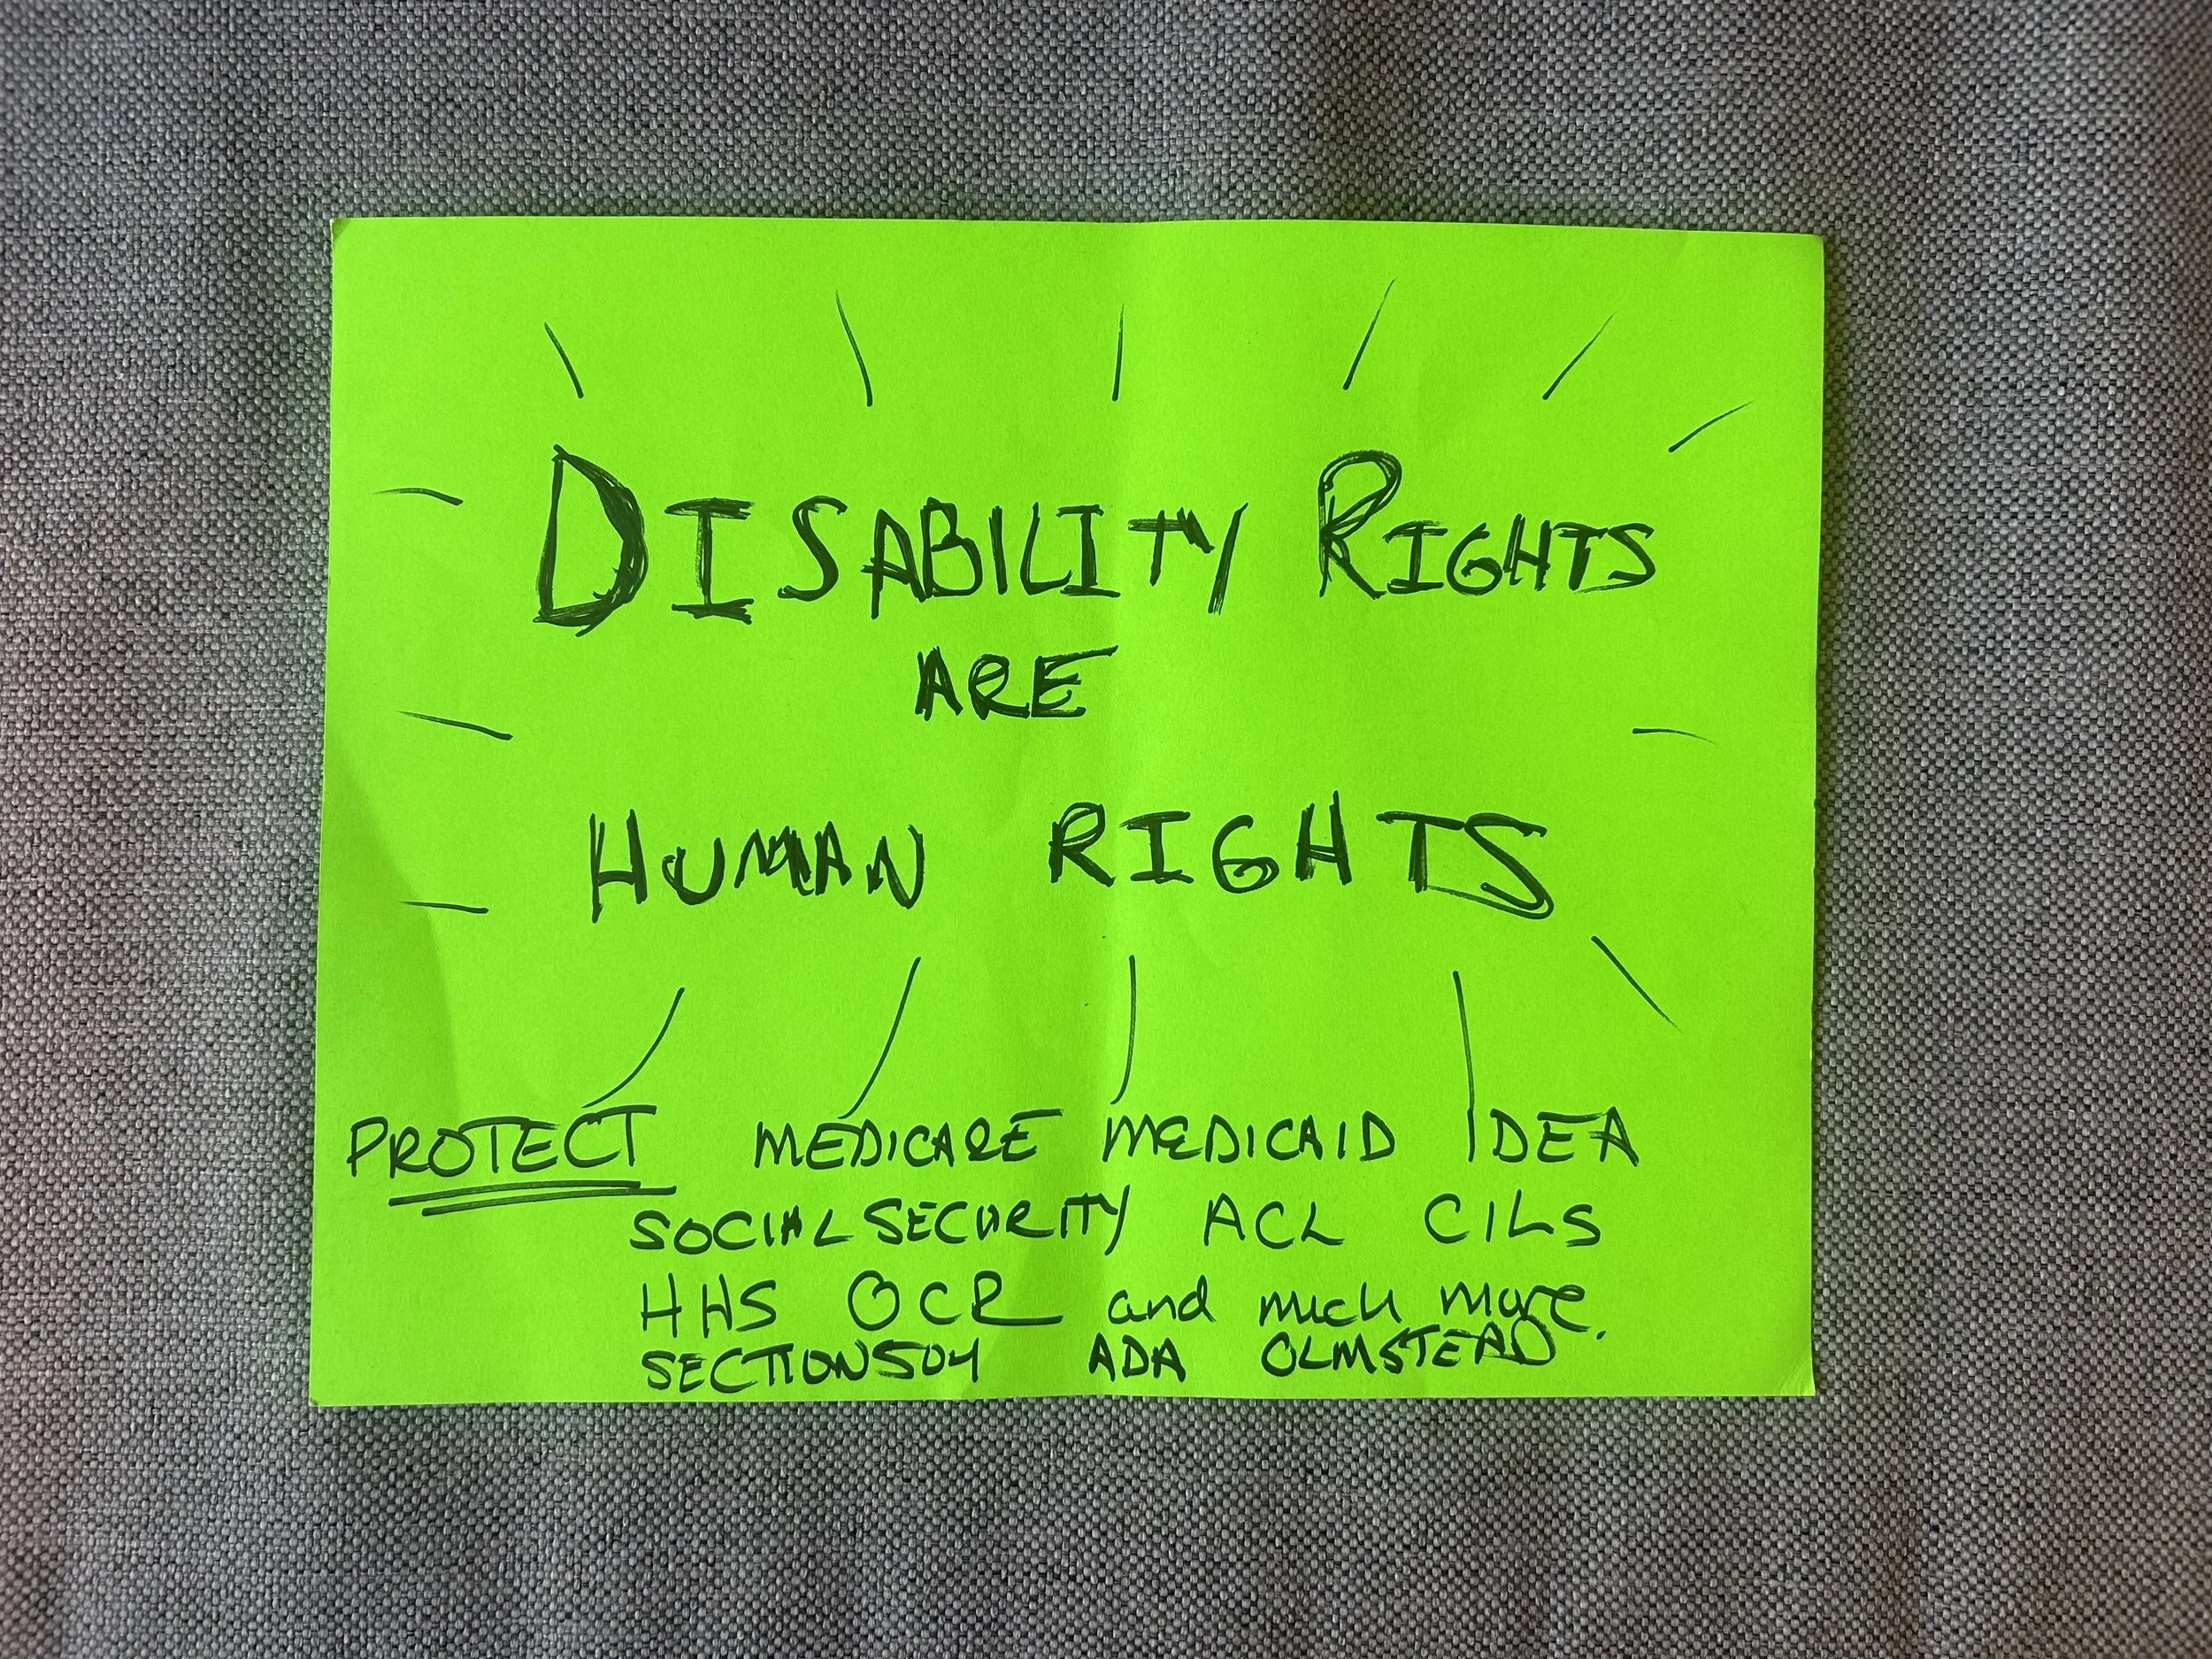 DISABILITY RIGHTS
ARE
HUMAN RIGHTS
PROTECT MEDICARE MEDICAID IDEA
SOCIAL SECURITY ACL CILS
HHS OCR and much more.
SECTION 504 ADA OLMSTEAD